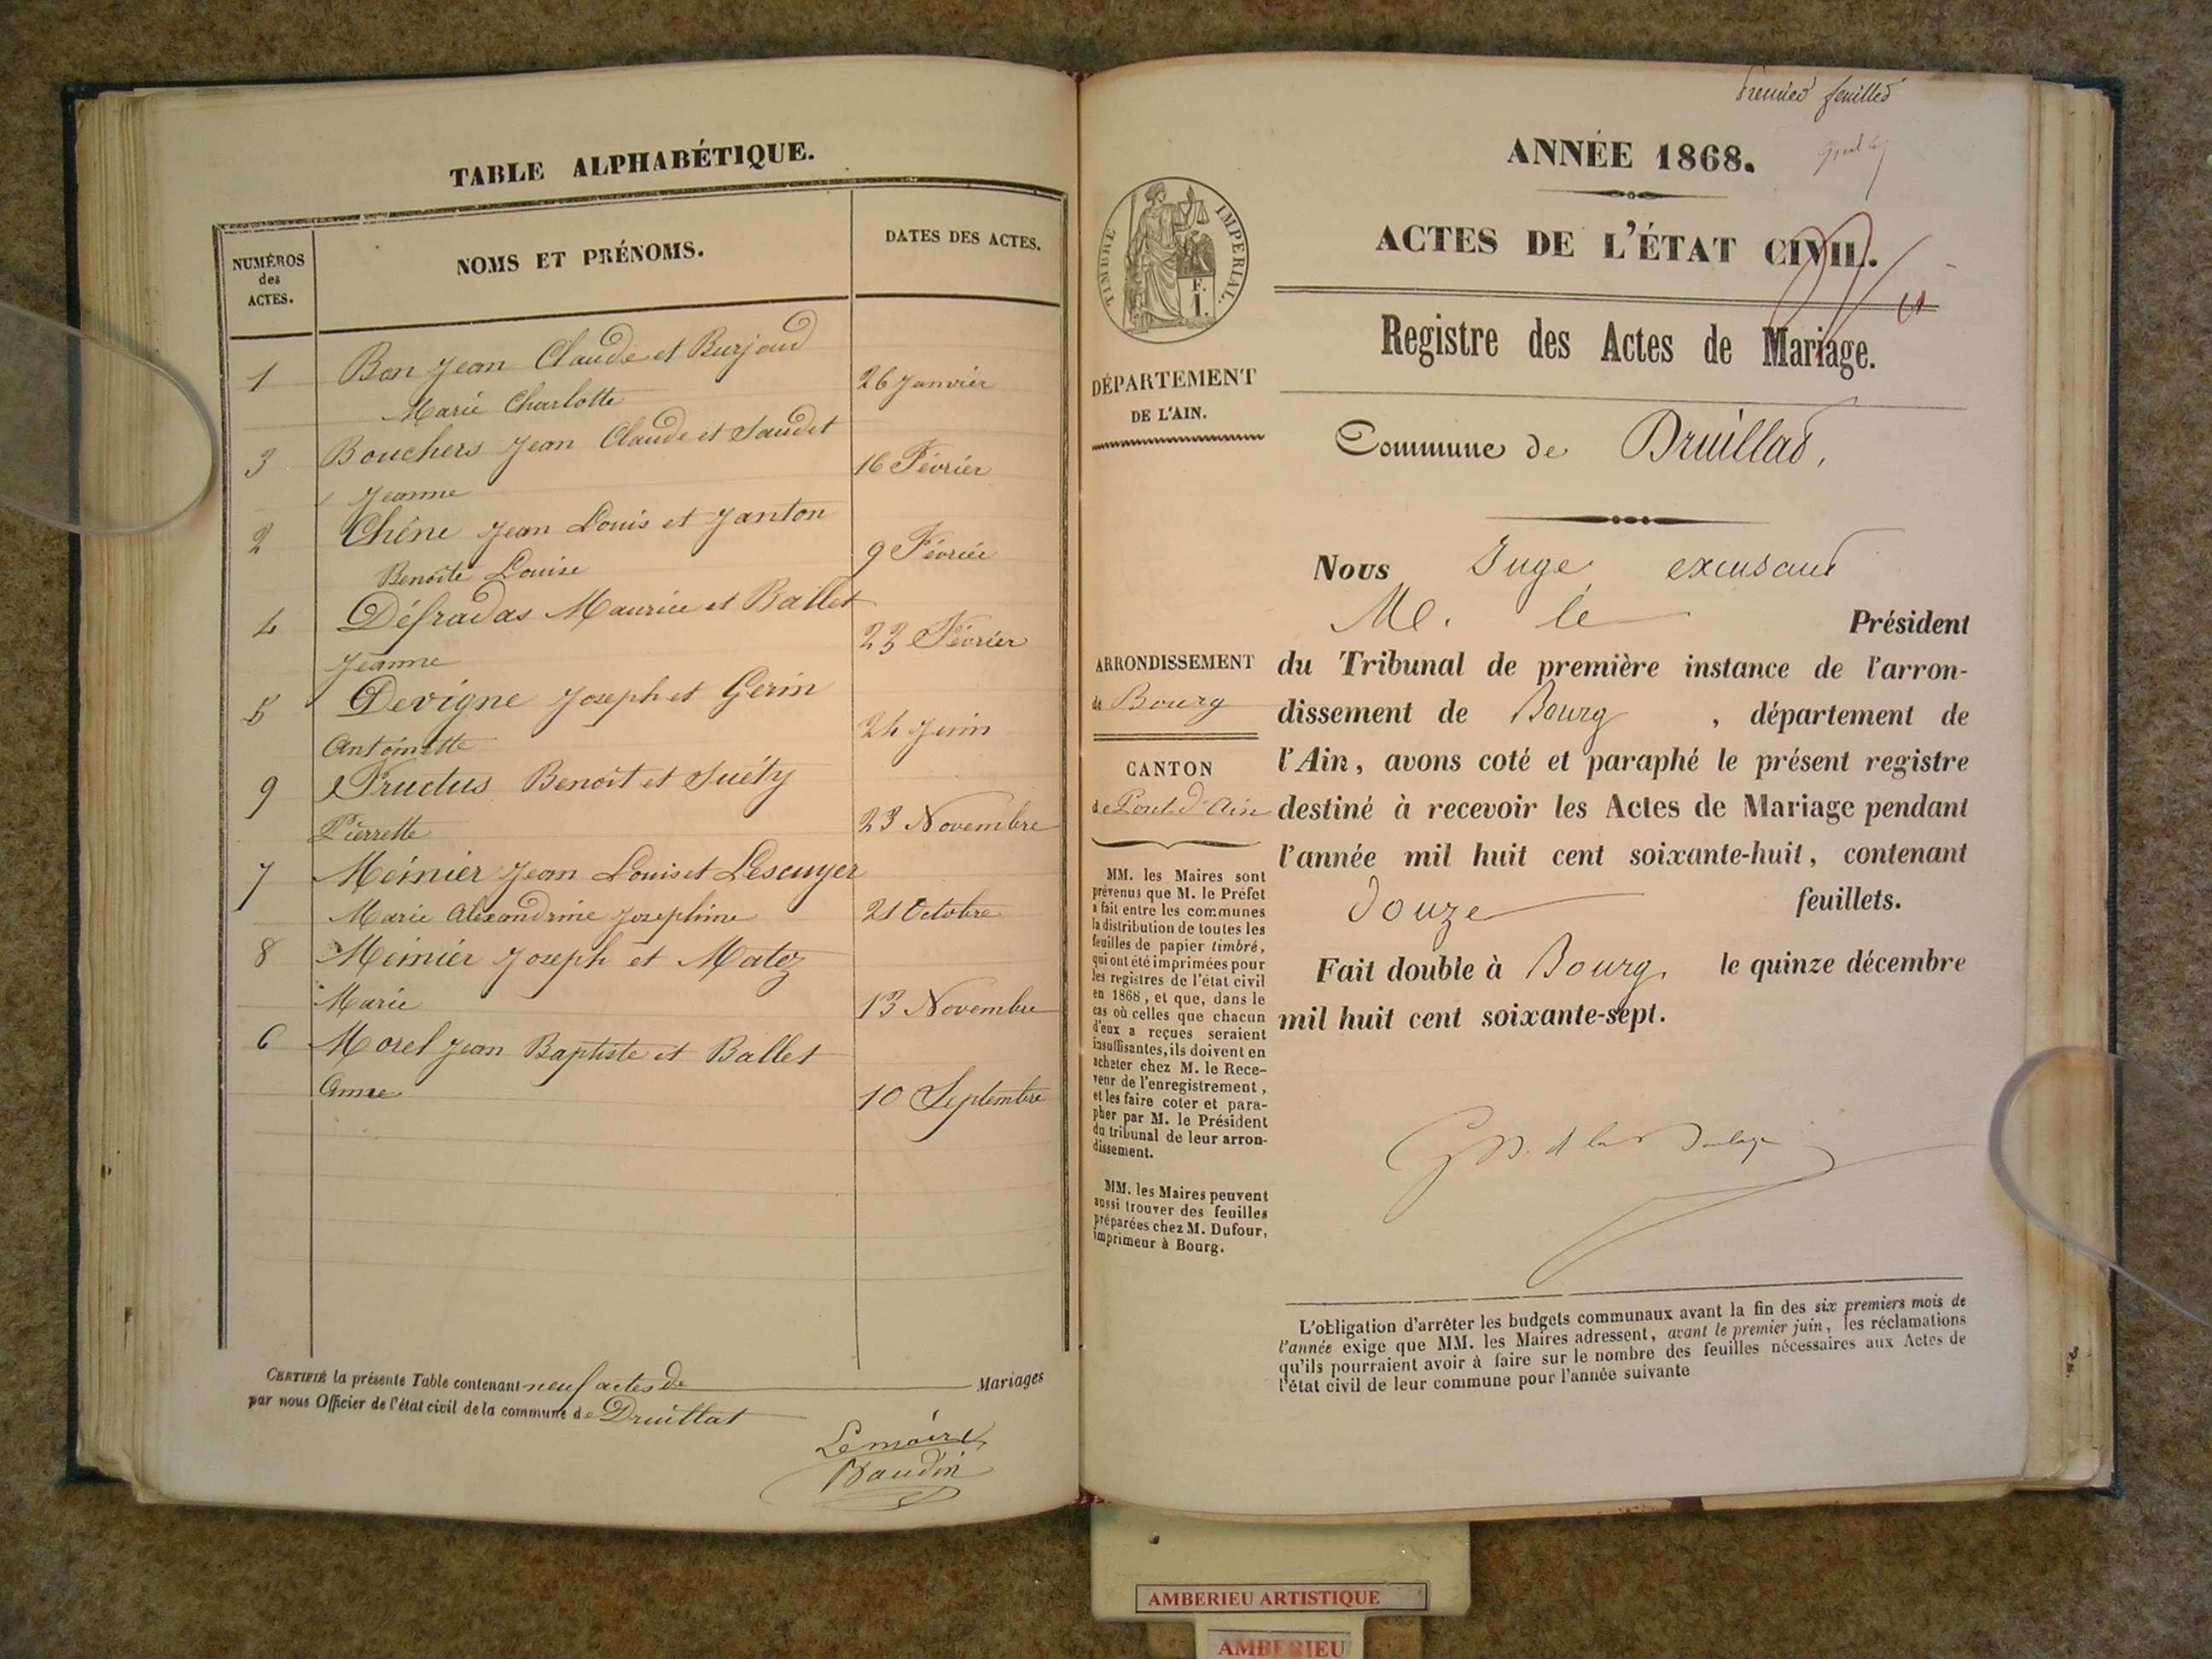 TABLE ALPHABÉTIQUE.
NUMÉROS
des
ACTES.
NOMS ET PRÉNOMS.
DATES DES ACTES.
1 Bon Jean Claude et Burjoud
Marie Charlotte 26 Janvier
3 Bouchers Jean Claude et Saudet
Jeanne 16 Février
2 Chêne Jean Louis et Janton
Benoite Louise 9 Février
4 Défradas Maurice et Ballet
Jeanne 23 Février
5 Devigne Joseph et Gerin
Antoinette 24 Juin
9 Fructus Benoit et Suéty
Pierrette 23 Novembre
7 Meinier Jean Louis et Lescuyer
Marie Alexandrine Josephine 21 Octobre
8 Meinier Joseph et Matez
Marie 13 Novembre
6 Morel Jean Baptiste et Ballet
Anne 10 Septembre
CERTIFIÉ la présente Table contenant neuf actes de Mariages
par nous Officier de l'état civil de la commune de Druillat
Le maire
Baudin
Premier feuillet
ANNÉE 1868.
ACTES DE L'ÉTAT CIVIL.
TIMBRE IMPERIAL.
F.
1.
Registre des Actes de Mariage.
DÉPARTEMENT
DE L'AIN.
Commune de Druillat,
Nous Juge excusant
M. le Président
ARRONDISSEMENT
de Bourg
CANTON
de Pont-d'Ain
du Tribunal de première instance de l'arron-
dissement de Bourg, département de
l'Ain, avons coté et paraphé le présent registre
destiné à recevoir les Actes de Mariage pendant
l'année mil huit cent soixante-huit, contenant
douze feuillets.
Fait double à Bourg, le quinze décembre
mil huit cent soixante-sept.
MM. les Maires sont
prévenus que M. le Préfet
a fait entre les communes
la distribution de toutes les
feuilles de papier timbré,
qui ont été imprimées pour
les registres de l'état civil
en 1868, et que, dans le
cas où celles que chacun
d'eux a reçues seraient
insuffisantes, ils doivent en
acheter chez M. le Rece-
veur de l'enregistrement,
et les faire coter et para-
pher par M. le Président
du tribunal de leur arron-
dissement.
MM. les Maires peuvent
aussi trouver des feuilles
préparées chez M. Dufour,
imprimeur à Bourg.
L'obligation d'arrêter les budgets communaux avant la fin des six premiers mois de
l'année exige que MM. les Maires adressent, avant le premier juin, les réclamations
qu'ils pourraient avoir à faire sur le nombre des feuilles nécessaires aux Actes de
l'état civil de leur commune pour l'année suivante
AMBERIEU ARTISTIQUE
AMBERIEU